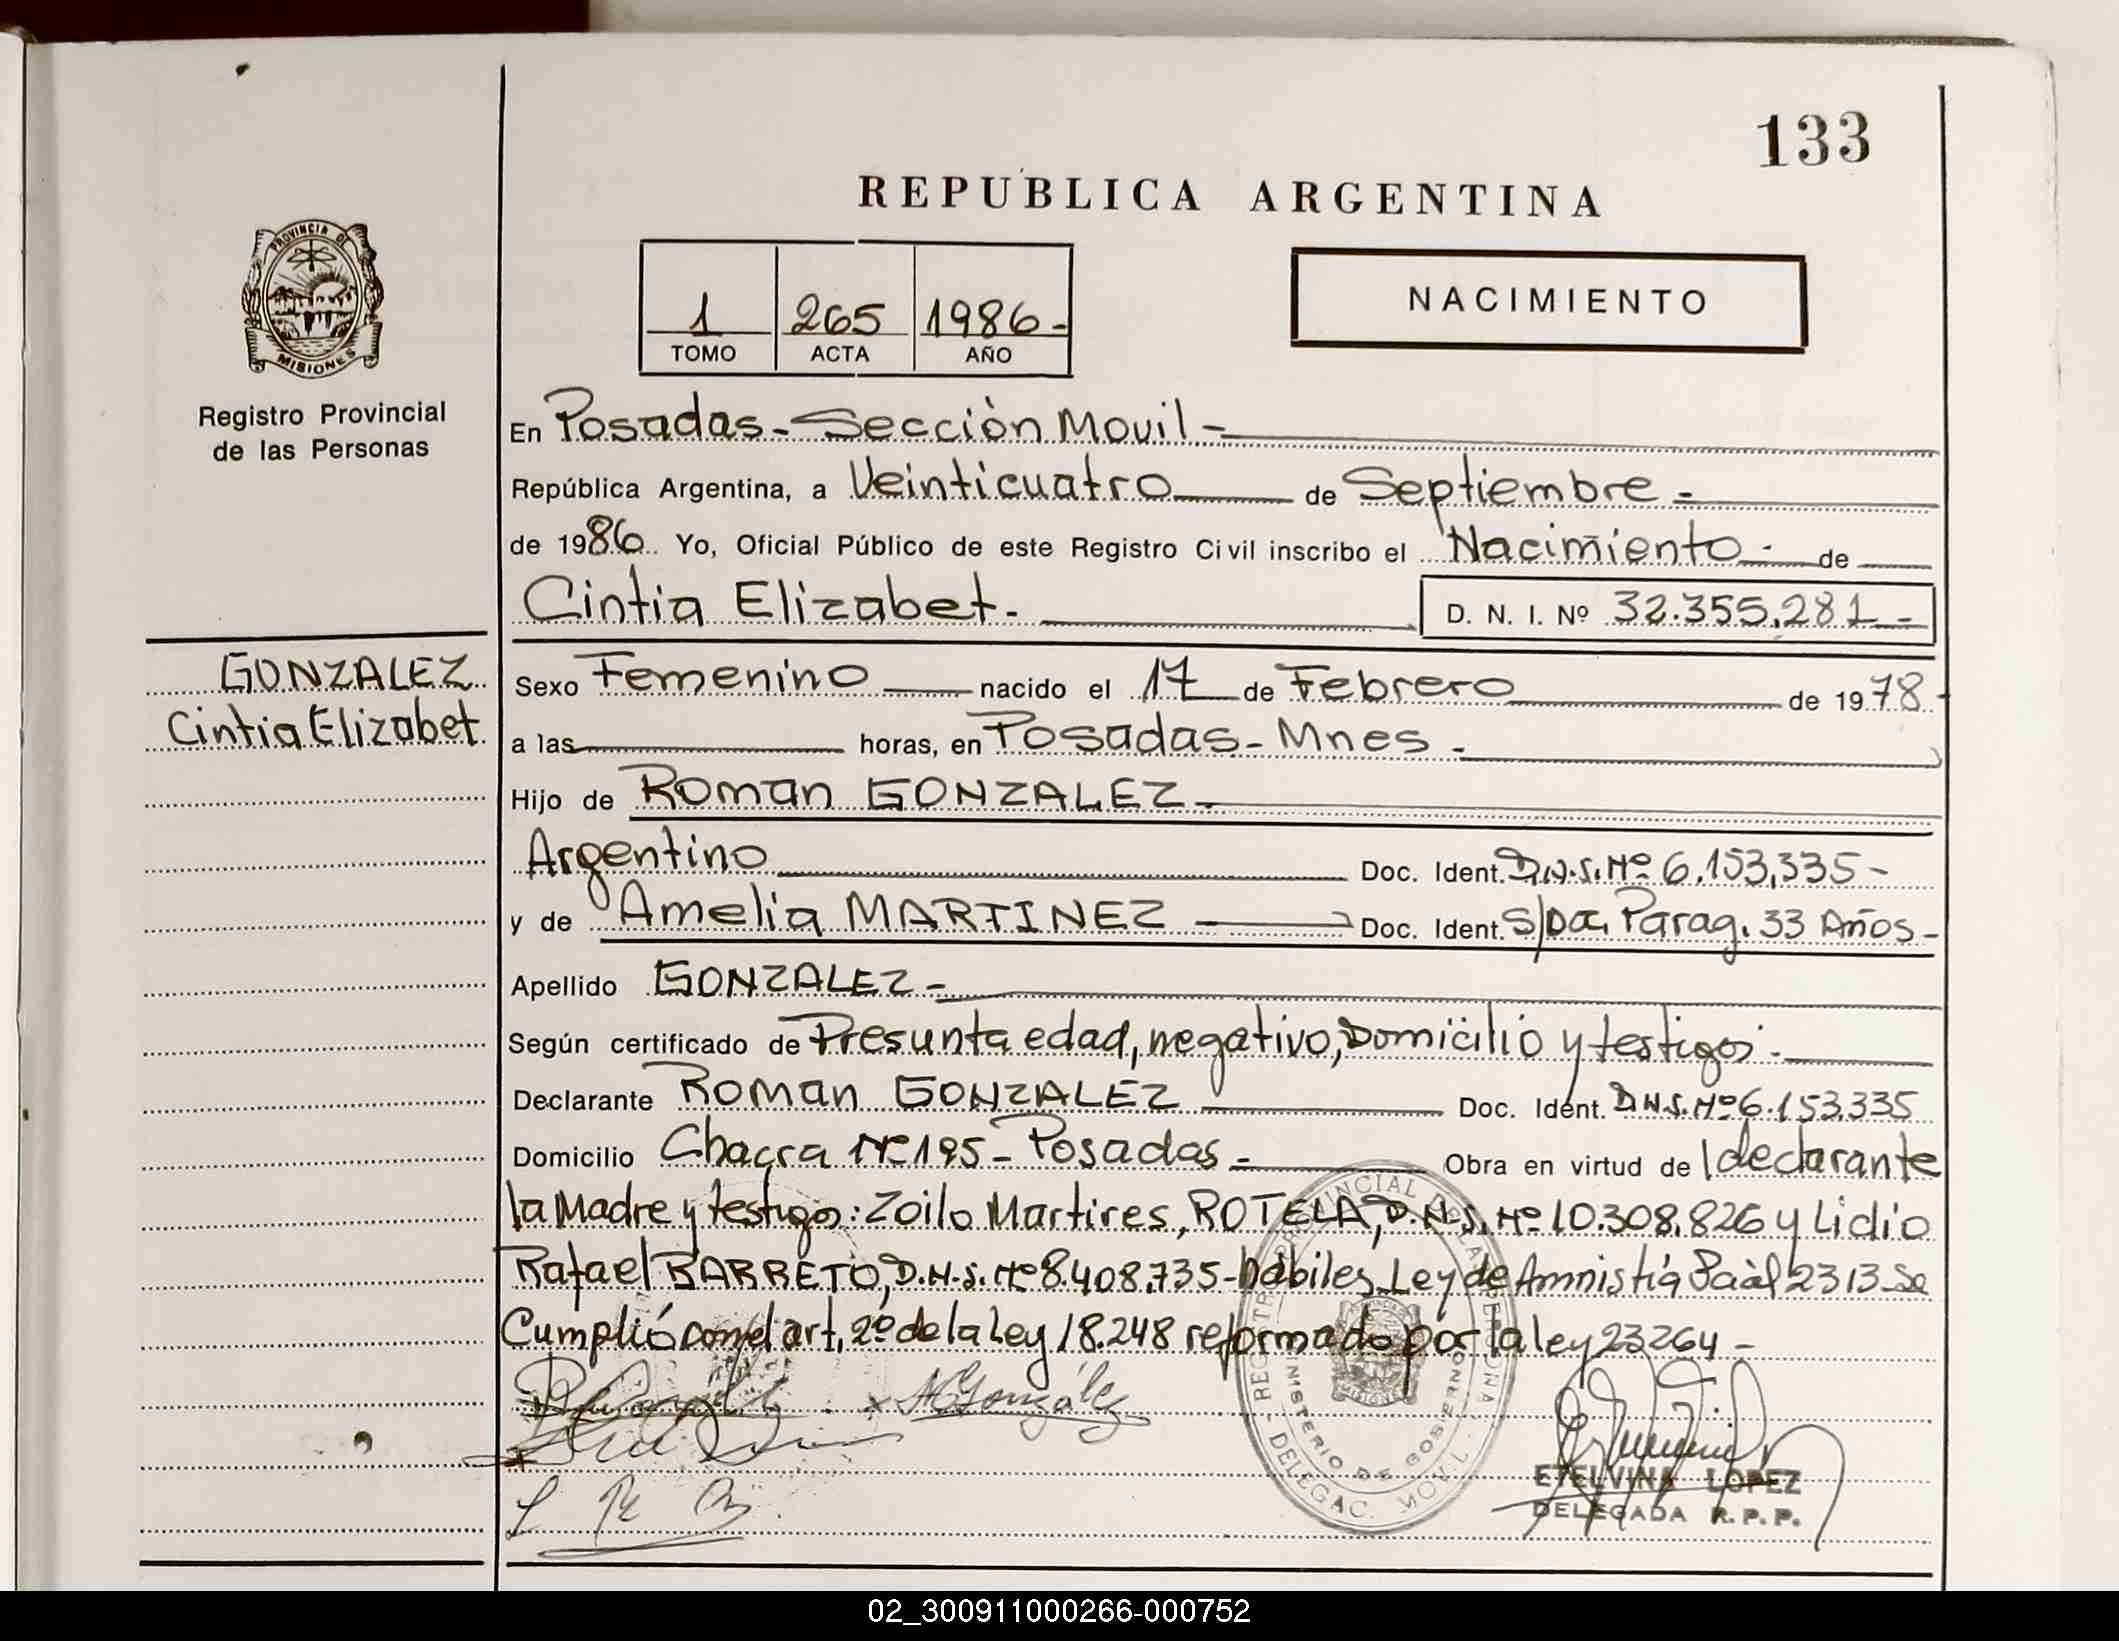 133
REPUBLICA ARGENTINA
PROVINCIA DE
MISIONES
Registro Provincial
de las Personas
1 265 1986-
TOMO ACTA AÑO
NACIMIENTO
En Posadas - Sección Movil -
República Argentina, a Veinticuatro de Septiembre -
de 1986 Yo, Oficial Público de este Registro Civil inscribo el Nacimiento - de
Cintia Elizabet - D. N. I. Nº 32.355.281 -
GONZALEZ
Cintia Elizabet
Sexo Femenino nacido el 17 de Febrero de 1978-
a las horas, en Posadas - Mnes -
Hijo de Roman GONZALEZ -
Argentino Doc. Ident. D.N.I. Nº 6.153.335 -
y de Amelia MARTINEZ - Doc. Ident. S/Doc. Parag. 33 Años -
Apellido GONZALEZ -
Según certificado de Presunta edad, negativo, Domicilio y testigos -
Declarante Roman GONZALEZ Doc. Ident. D.N.I. Nº 6.153.335
Domicilio Chacra Nº 195 - Posadas - Obra en virtud de l declarante
la Madre y testigos: Zoilo Martires, ROTELA, D.N.I. Nº 10.308.826 y Lidio
Rafael BARRETO, D.N.I. Nº 8.408.735 - hábiles, Ley de Amnistía 2313 - Se
Cumplió con el art, 2º de la Ley 18.248 reformado por la ley 23264 -
González
REGISTRO PROVINCIAL DE LAS PERSONAS
MINISTERIO DE GOBIERNO
DELEGAC. MOVIL
L R B
ETELVINA LOPEZ
DELEGADA R.P.P.
02_300911000266-000752